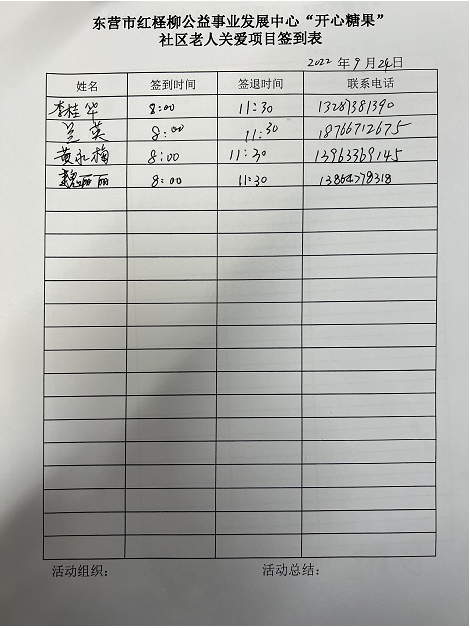 东营市红柽柳公益事业发展中心“开心糖果”
社区老人关爱项目签到表
2022 年 9 月 24 日
姓名 签到时间 签退时间 联系电话
李桂华 8:00 11:30
兰英 8:00 11:30 18766712675
黄永梅 8:00 11:30 13963369145
魏丽丽 8:00 11:30
活动组织： 活动总结：